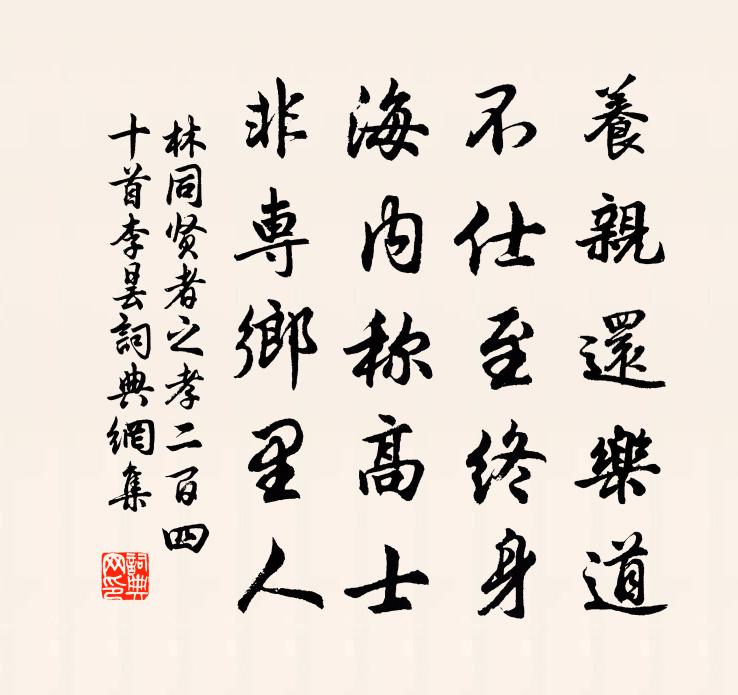 養親還樂道
不仕至終身
海内称高士
非専鄉里人
林同贤者之孝二百四
十首李昙詞典網集
詞典
网印